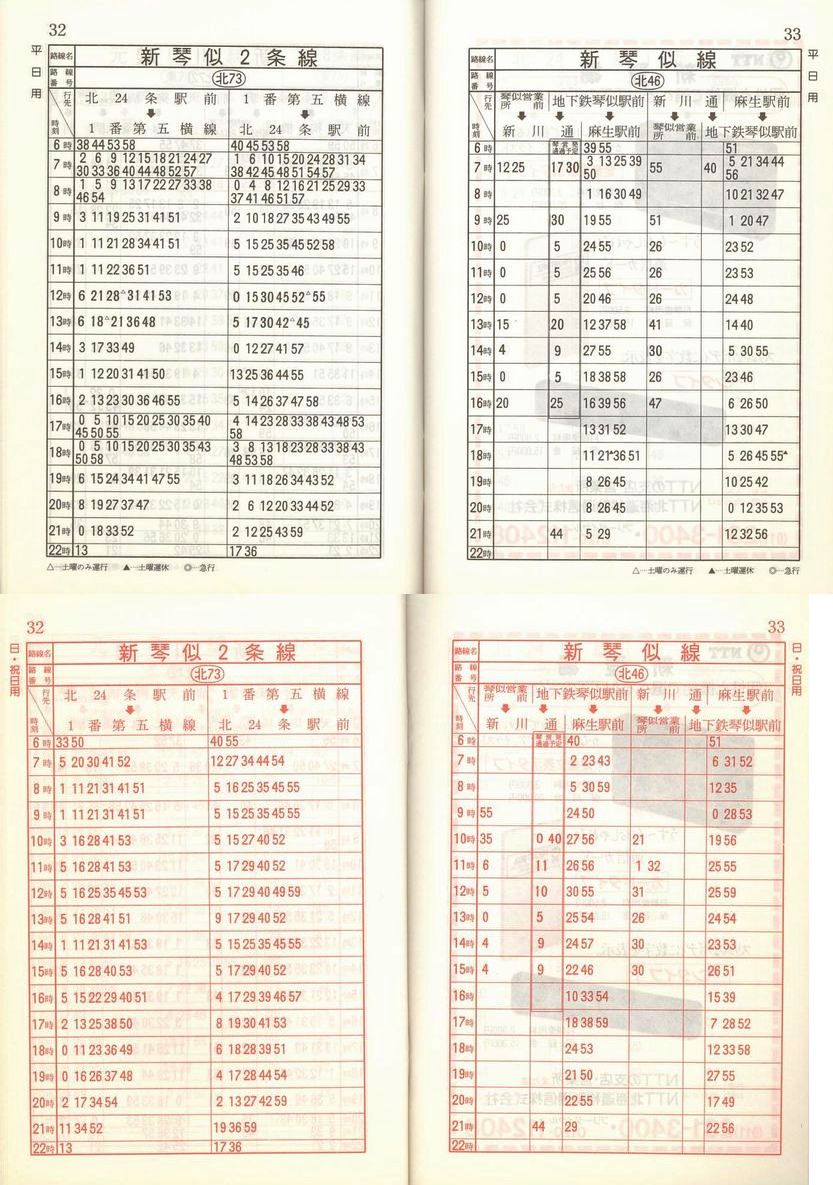 32
平日用
路線名 新琴似2条線
路線番号 北73
行先 時刻
北24条駅前 1番第五横線
1番第五横線 北24条駅前
6時 38 44 53 58 | 40 45 53 58
7時 2 6 9 12 15 18 21 24 27 | 1 6 10 15 20 24 28 31 34
30 33 36 40 44 48 52 57 | 38 42 45 48 51 54 57
8時 1 5 9 13 17 22 27 33 38 | 0 4 8 12 16 21 25 29 33
46 54 | 37 41 46 51 57
9時 3 11 19 25 31 41 51 | 2 10 18 27 35 43 49 55
10時 1 11 21 28 34 41 51 | 5 15 25 35 45 52 58
11時 1 11 22 36 51 | 5 15 25 35 46
12時 6 21 28 △31 41 53 | 0 15 30 45 52 △55
13時 6 18 △21 36 48 | 5 17 30 42 △45
14時 3 17 33 49 | 0 12 27 41 57
15時 1 12 20 31 41 50 | 13 25 36 44 55
16時 2 13 23 30 36 46 55 | 5 14 26 37 47 58
17時 0 5 10 15 20 25 30 35 40 | 4 14 23 28 33 38 43 48 53
45 50 55 | 58
18時 0 5 10 15 20 25 30 35 43 | 3 8 13 18 23 28 33 38 43
50 58 | 48 53 58
19時 6 15 24 34 41 47 55 | 3 11 18 26 34 43 52
20時 8 19 27 37 47 | 2 6 12 20 33 44 52
21時 0 18 33 52 | 2 12 25 43 59
22時 13 | 17 36
△…土曜のみ運行 ▲…土曜運休 ◎…急行
33
平日用
路線名 新琴似線
路線番号 北46
行先 時刻
琴似営業所前 地下鉄琴似駅前 新川通 麻生駅前
新川通 麻生駅前 琴似営業所前 地下鉄琴似駅前
6時 | | 39 55 | | | 51
7時 12 25 | 17 30 | 3 13 25 39 | 55 | 40 | 5 21 34 44
50 | 56
8時 | | 1 16 30 49 | | | 10 21 32 47
9時 25 | 30 | 19 55 | 51 | | 1 20 47
10時 0 | 5 | 24 55 | 26 | | 23 52
11時 0 | 5 | 25 56 | 26 | | 23 53
12時 0 | 5 | 20 46 | 26 | | 24 48
13時 15 | 20 | 12 37 58 | 41 | | 14 40
14時 4 | 9 | 27 55 | 30 | | 5 30 55
15時 0 | 5 | 18 38 58 | 26 | | 23 46
16時 20 | 25 | 16 39 56 | 47 | | 6 26 50
17時 | | 13 31 52 | | | 13 30 47
18時 | | 11 21▲36 51 | | | 5 26 45 55▲
19時 | | 8 26 45 | | | 10 25 42
20時 | | 8 26 45 | | | 0 12 35 53
21時 | 44 | 5 29 | | | 12 32 56
22時
△…土曜のみ運行 ▲…土曜運休 ◎…急行
32
日・祝日用
路線名 新琴似2条線
路線番号 北73
行先 時刻
北24条駅前 1番第五横線
1番第五横線 北24条駅前
6時 33 50 | 40 55
7時 5 20 30 41 52 | 12 27 34 44 54
8時 1 11 21 31 41 51 | 5 16 25 35 45 55
9時 1 11 21 31 41 51 | 5 15 25 35 45 55
10時 3 16 28 41 53 | 5 15 27 40 52
11時 5 16 28 41 53 | 5 17 29 40 52
12時 5 16 25 35 45 53 | 5 17 29 40 49 59
13時 5 16 28 41 51 | 9 17 29 40 52
14時 1 11 21 31 41 53 | 5 15 25 35 45 55
15時 5 16 28 40 53 | 5 17 29 40 52
16時 5 15 22 29 40 51 | 4 17 29 39 46 57
17時 2 13 25 38 50 | 8 19 30 41 53
18時 0 11 23 36 49 | 6 18 28 39 51
19時 0 16 26 37 48 | 4 17 28 44 54
20時 2 17 34 54 | 2 13 27 42 59
21時 11 34 52 | 19 36 59
22時 13 | 17 36
33
日・祝日用
路線名 新琴似線
路線番号 北46
行先 時刻
琴似営業所前 地下鉄琴似駅前 新川通 麻生駅前
新川通 麻生駅前 琴似営業所前 地下鉄琴似駅前
6時 | | 40 | | | 51
7時 | | 2 23 43 | | | 6 31 52
8時 | | 5 30 59 | | | 12 35
9時 55 | | 24 50 | | | 0 28 53
10時 35 | 0 40 | 27 56 | 21 | | 19 56
11時 6 | 11 | 26 56 | 1 32 | | 25 55
12時 5 | 10 | 30 55 | 31 | | 25 59
13時 0 | 5 | 25 54 | 26 | | 24 54
14時 4 | 9 | 24 57 | 30 | | 23 53
15時 4 | 9 | 22 46 | 30 | | 26 51
16時 | | 10 33 54 | | | 15 39
17時 | | 18 38 59 | | | 7 28 52
18時 | | 24 53 | | | 12 33 58
19時 | | 21 50 | | | 27 55
20時 | | 22 55 | | | 17 49
21時 | 44 | 29 | | | 22 56
22時